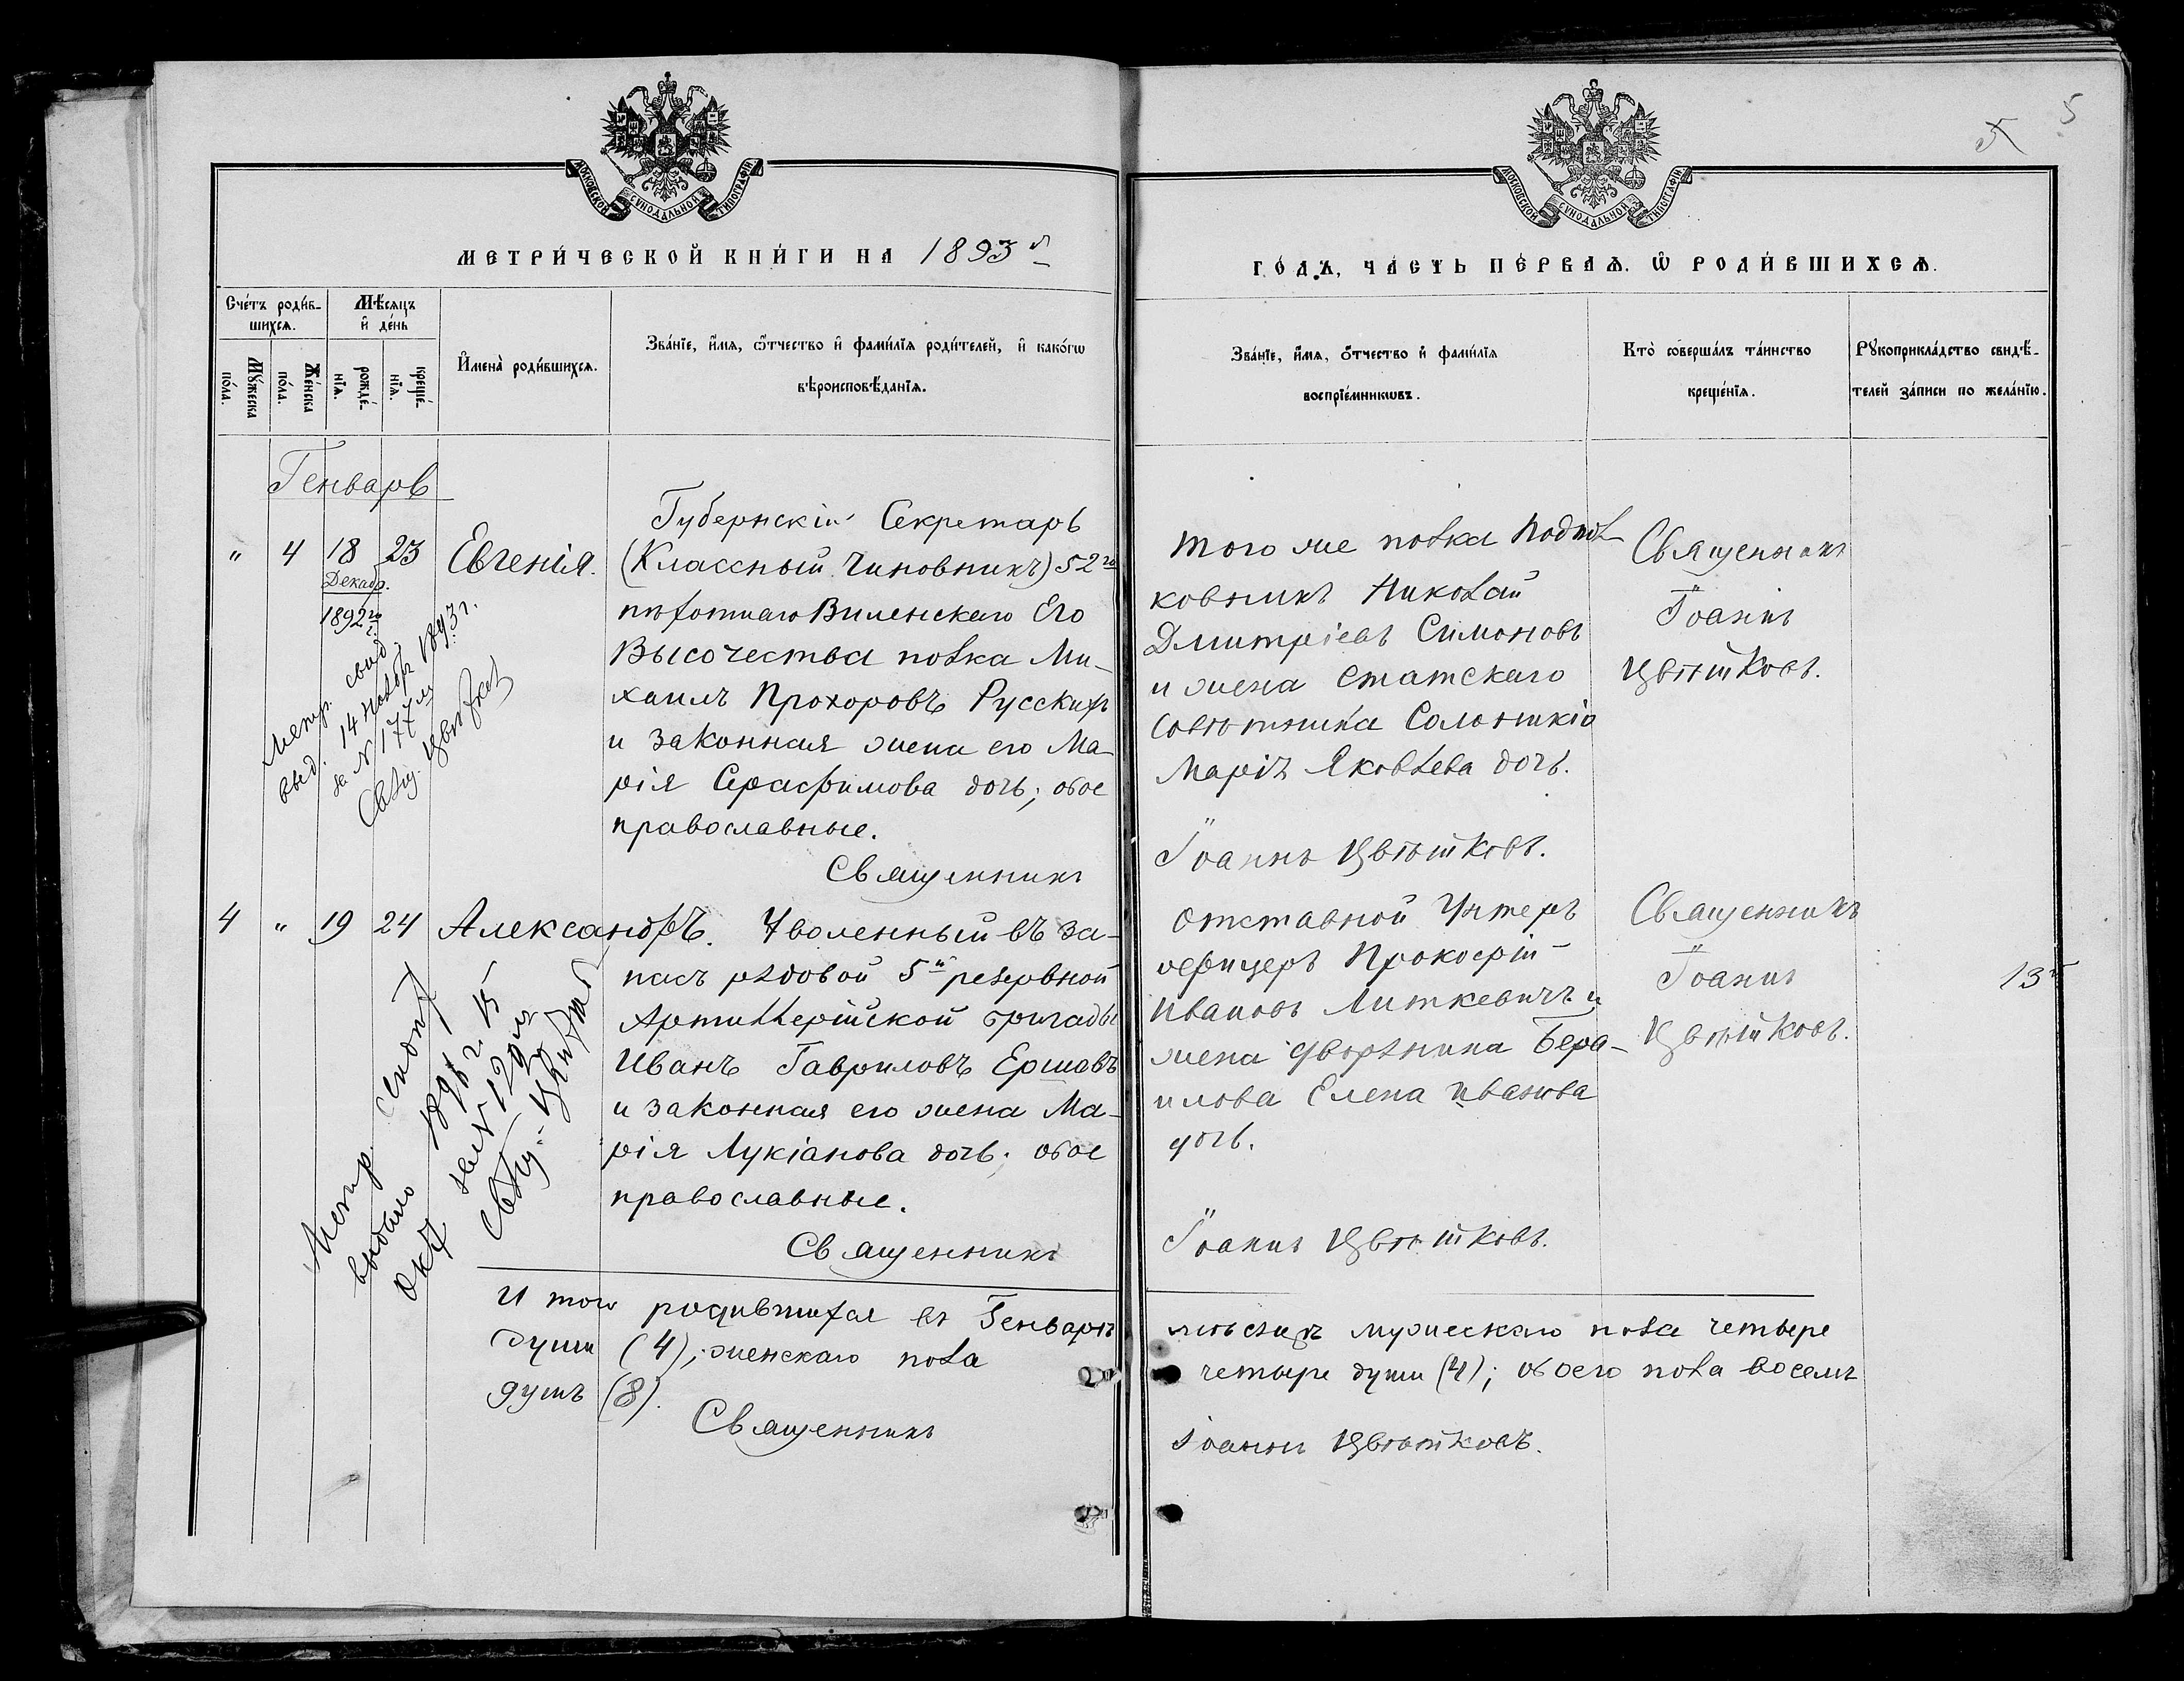 5
5
МОСКОВСКОЙ СѴНОДАЛЬНОЙ ТИПОГРАФІИ
МОСКОВСКОЙ СѴНОДАЛЬНОЙ ТИПОГРАФІИ
МЕТРИ́ЧЕСКОЙ КНИ́ГИ НА 1893й
ГО́ДЪ, ЧА́СТЬ ПЕ́РВАѦ. Ѽ РОДИ́ВШИХСѦ.
Сче́тъ роди́в-
шихсѧ.
Мѣ́сѧцъ
и҆ де́нь
Мꙋ́жеска
по́ла.
Же́нска
по́ла.
рожде́-
нїѧ.
креще́-
нїѧ.
И҆мена̀ роди́вшихсѧ.
Зва́нїе, и҆́мѧ, ѻ҆́тчество и҆ фами́лїѧ роди́телей, и҆ како́гѡ
вѣроисповѣ́данїѧ.
Зва́нїе, и҆́мѧ, ѻ҆́тчество и҆ фами́лїѧ
воспрїе́мникѡвъ.
Кто̀ соверша́лъ та́инство
креще́нїѧ.
Рꙋкоприкла́дство свидѣ́-
телей за́писи по жела́нїю.
Генварь
" 4 18 23 Евгенія.
Декабр.
1892го
г.
Губернскій Секретарь
(Классный Чиновникъ) 52го
пѣхотнаго Виленскаго Его
Высочества полка Ми-
хаилъ Прохоровъ Русскихъ
и законная жена его Ма-
рія Серафимова дочь; обое
православные.
Священникъ
Того же полка Подпол-
ковникъ Николай
Дмитріевъ Симоновъ
и жена Статскаго
Совѣтника
Марія Яковлева дочь.
Іоаннъ Цвѣтковъ.
Священникъ
Іоаннъ
Цвѣтковъ.
Метр. свид.
выд. 14 Ноября 1893 г.
за № 177м
Свящ. Цвѣтков
4 " 19 24 Александръ.
Уволенный въ за-
пасъ рядовой 5й резервной
Артиллерійской бригады
Иванъ Гавриловъ Ершовъ
и законная его жена Ма-
рія Лукіанова дочь. обое
православные.
Священникъ
Отставной Унтеръ
офицеръ Прокофій
Ивановъ Литкевичъ и
жена дворянина
Елена Иванова
дочь.
Іоаннъ Цвѣтковъ.
Священникъ
Іоаннъ
Цвѣтковъ.
13
Метр.
выдано
Окт 15
за № 129м
Свящ. Цвѣтков
Итого родившихся въ Генварѣ мѣсяцѣ мужескаго пола четыре
души (4); женскаго пола четыре души (4); обоего пола восемь
душъ (8).
Священникъ Іоаннъ Цвѣтковъ.